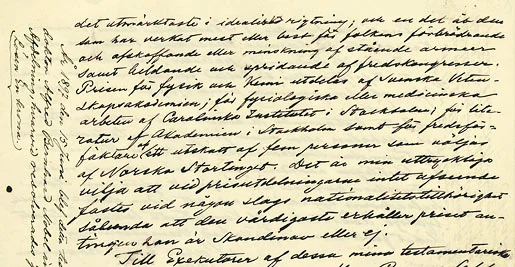 det utmärktaste i idealisk rigtning; och en del åt den
som har verkat mest eller best för folkens förbrödrande
och afskaffande eller minskning af stående armeer
samt bildande och spridande af fredskongresser.
Prisen för fysik och kemi utdelas af Svenska Veten-
skapsakademien; för fysiologiska eller medicinska
arbeten af Carolinska Institutet i Stockholm; för lite-
ratur af Akademien i Stockholm samt för fredsför-
fäktare af ett utskott af fem personer som väljas
af Norska Stortinget. Det är min uttryckliga
vilja att vid prisutdelningarne intet afseende
fästes vid någon slags nationalitetstillhörighet
sålunda att den värdigaste erhåller priset an-
tingen han är Skandinav eller ej.
Till Exekutorer af dessa mina testamentariska
År 1897 den
Alfred Bernhard Nobel